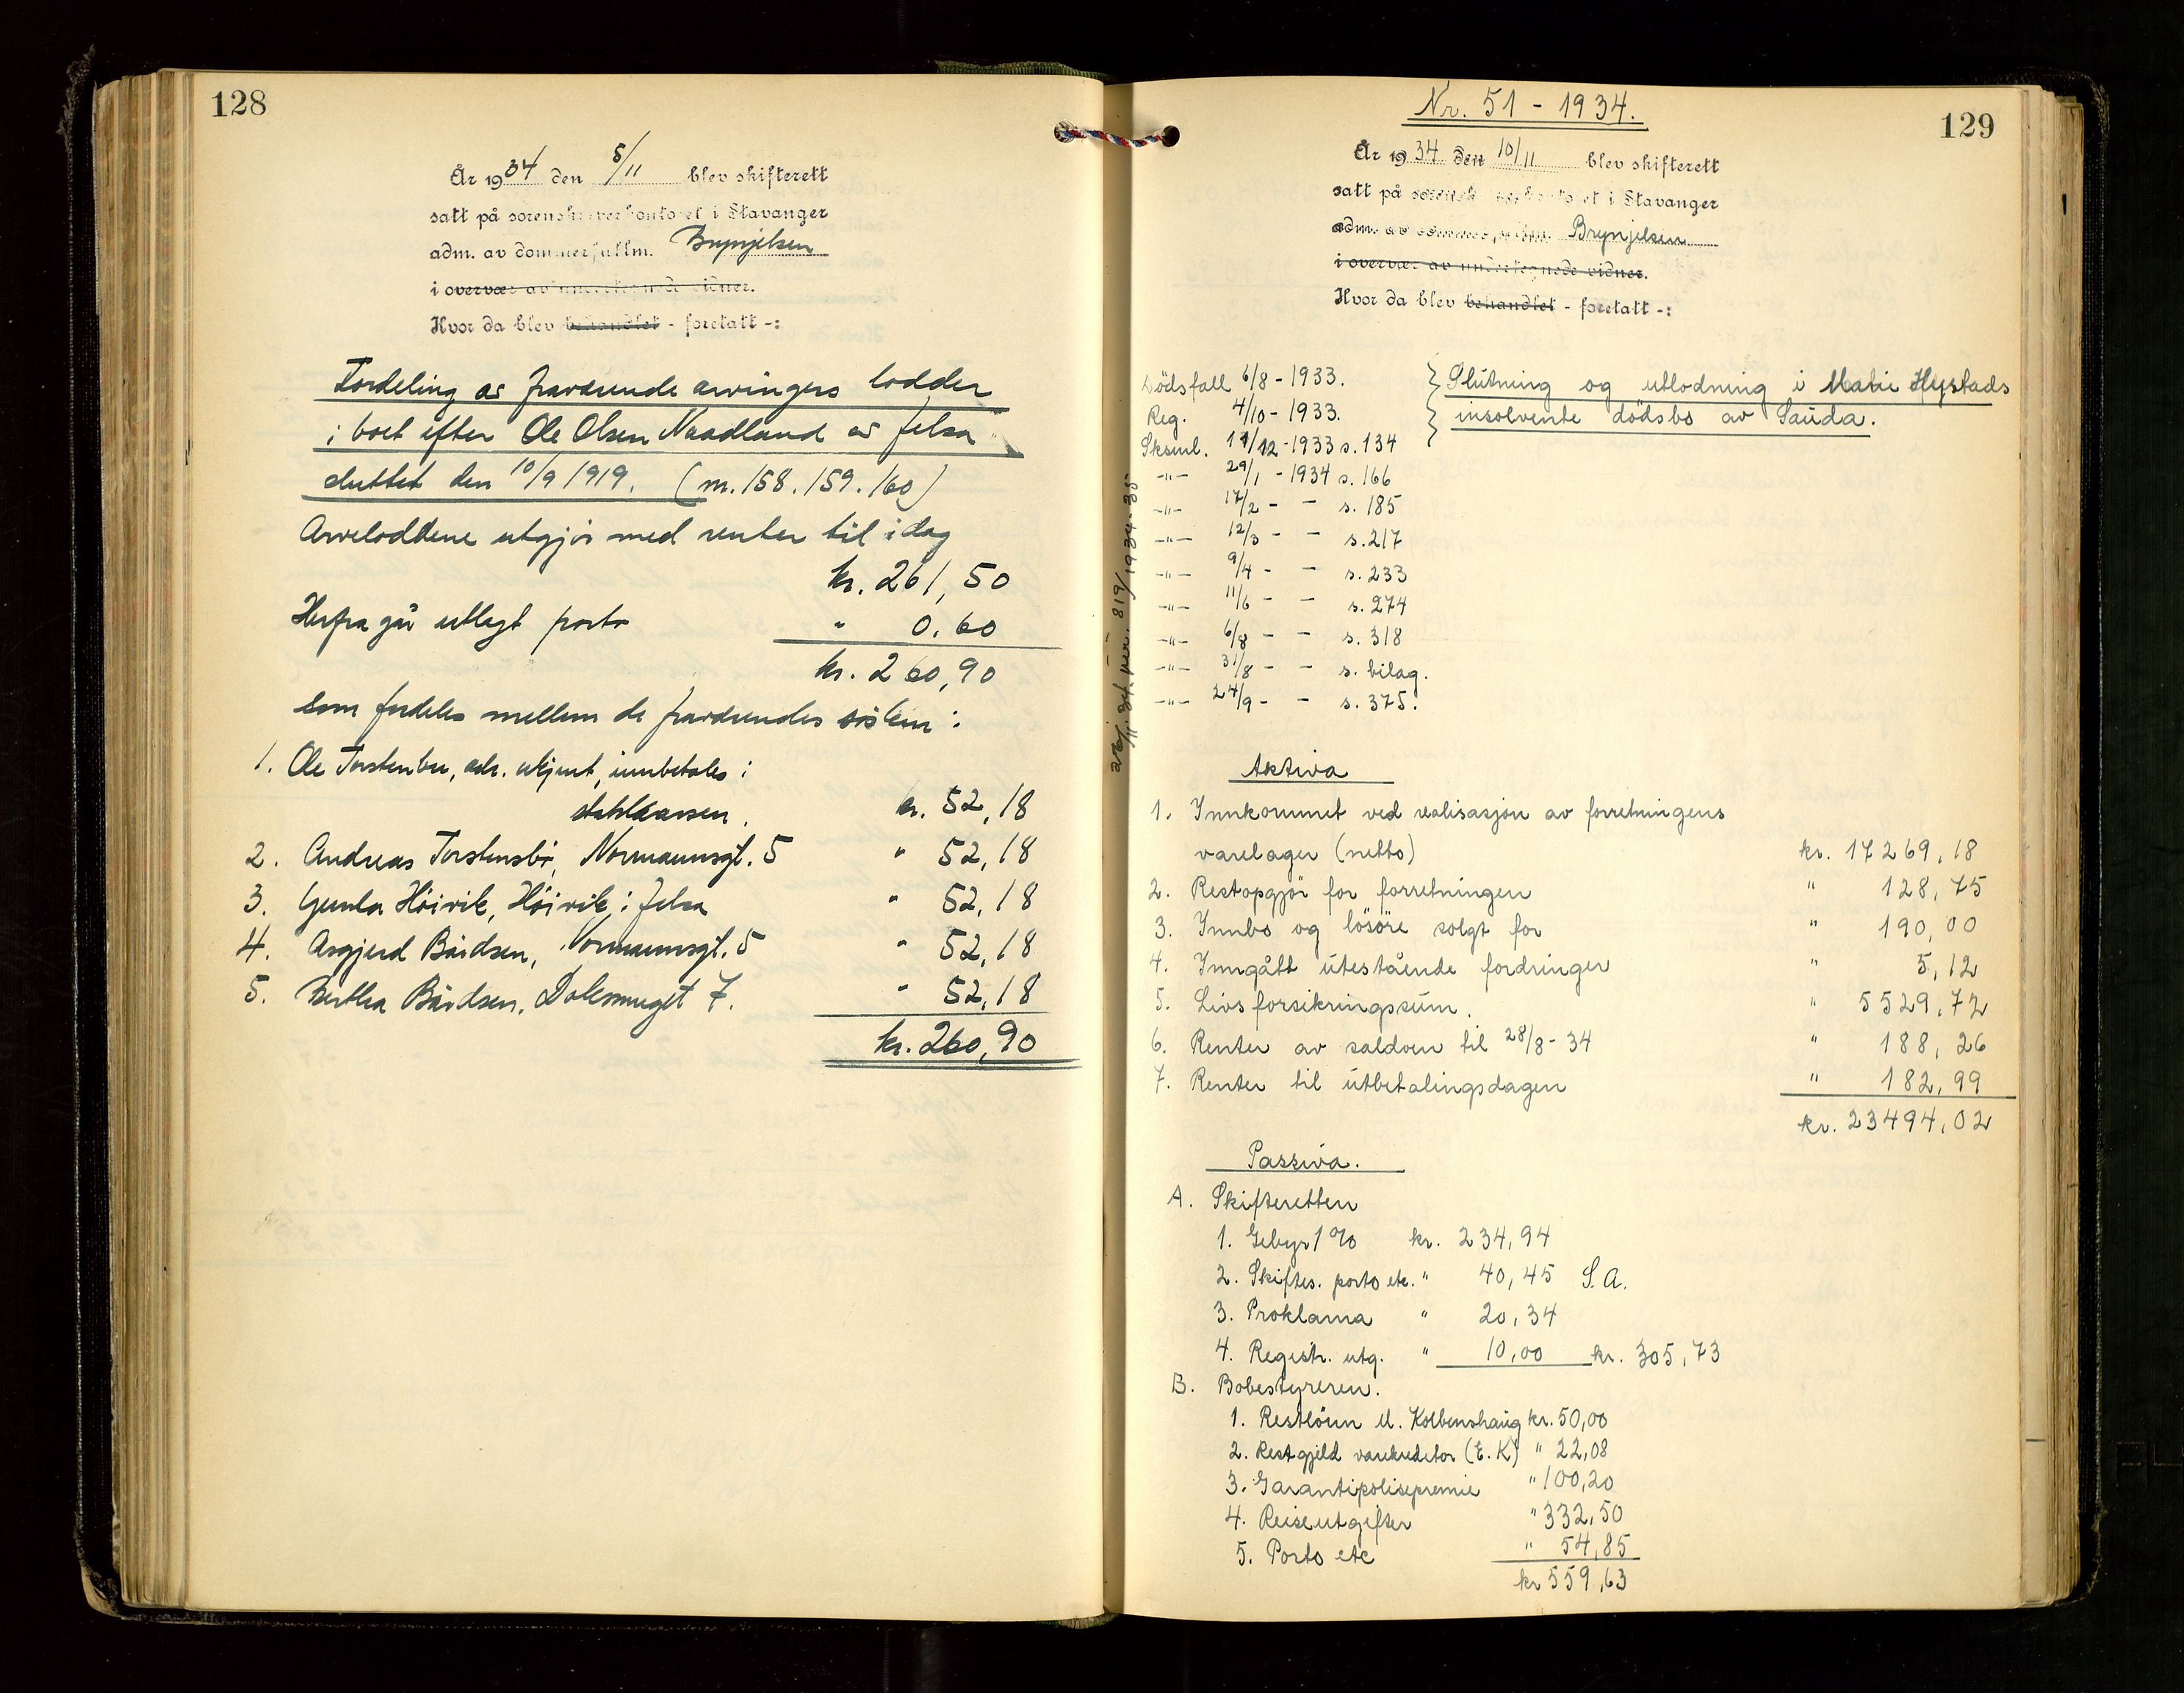 128
År 1934 den 5/11 blev skifterett
satt på sorenskriverkontoret i Stavanger
adm. av dommerfullm. Brynjelsen
i overvær av undertegnede vidner.
Hvor da blev behandlet - foretatt -:
Fordeling av fraværende arvingers lodder
i boet efter Ole Olsen Naadland av Jelsa
sluttet den 10/9 1919. (nr. 158. 159. 160)
Arveloddene utgjør med renter til idag
kr. 261,50
Herfra går utlagt porto " 0.60
kr. 260,90
som fordeles mellem de fraværendes søsken:
1. Ole Torstenbu, adr. ukjent, innbetales i
statskassen. kr. 52,18
2. Andreas Torstensbø, Normannsgt. 5 " 52,18
3. Gunla Høivik, Høivik i Jelsa " 52,18
4. Asgjerd Bårdsen, Normannsgt. 5 " 52,18
5. Bertha Bårdsen, 7. " 52,18
kr. 260,90
129
Nr. 51 - 1934.
År 1934 den 10/11 blev skifterett
satt på sorenskriverkontoret i Stavanger
adm. av dommerfullm. Brynjelsen
i overvær av undertegnede vidner.
Hvor da blev behandlet - foretatt -:
Dödsfall 6/8 - 1933.
Reg. 4/10 - 1933.
Sksml. 11/12 - 1933 s. 134
-"- 29/1 - 1934 s. 166
-"- 17/2 - - s. 185
-"- 12/3 - - s. 217
-"- 9/4 - - s. 233
-"- 11/6 - - s. 274
-"- 6/8 - - s. 318
-"- 31/8 - - s. bilag.
-"- 24/9 - - s. 375.
Slutning og utlodning i Matie Hystads
insolvente dödsbo av Sauda.
819/1934-35
Aktiva
1. Innkommet ved realisasjon av forretningens
varelager (netto) kr. 17269,18
2. Restopgjör for forretningen " 128,75
3. Innbo og lösöre solgt for " 190,00
4. Inngått utestående fordringer " 5,12
5. Livsforsikringssum. " 5529,72
6. Renter av saldoen til 28/8 - 34 " 188,26
7. Renter til utbetalingsdagen " 182,99
kr. 23494,02
Passiva.
A. Skifteretten
1. Gebyr 1% kr. 234,94
2. Skiftes. porto etc. " 40,45 S.A.
3. Proklama " 20,34
4. Registr. utg. " 10,00 kr. 305,73
B. Bobestyreren.
1. Restlönn M. Kolbenshaug kr. 50,00
2. Restgjeld varekreditor (E.K) " 22,08
3. Garantipolisepremie " 100,20
4. Reiseutgifter " 332,50
5. Porto etc " 54,85
kr 559,63